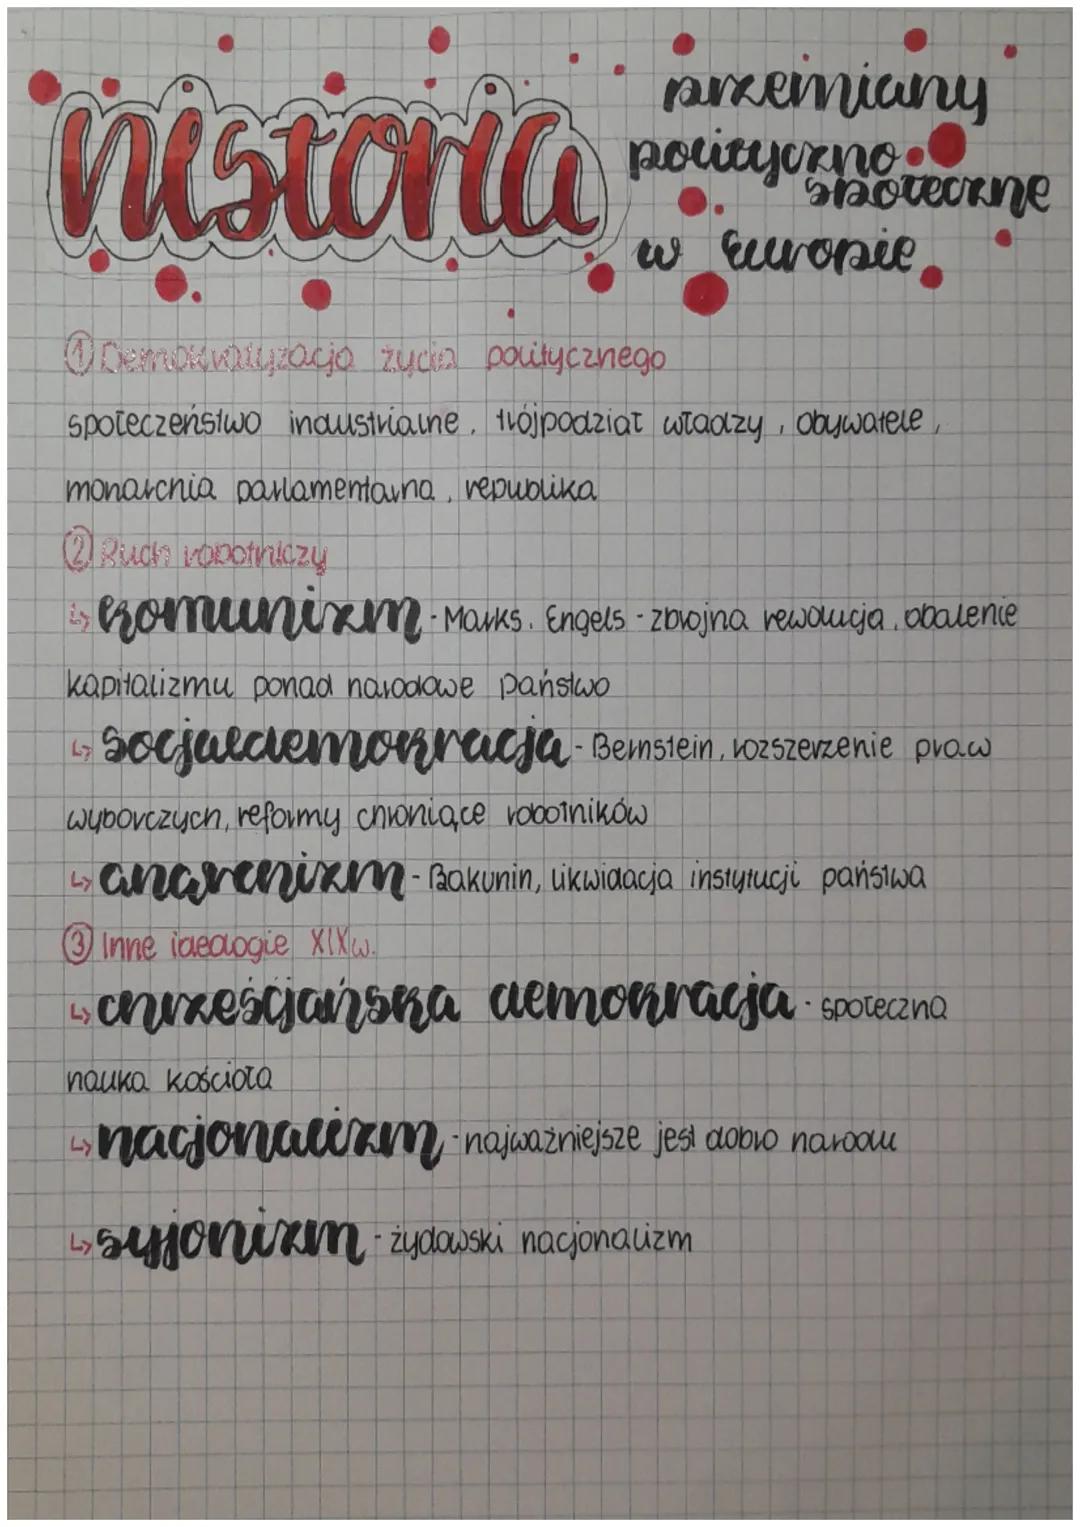 historia
przemiany
polityczno-
społeczne
w Europie
① Demokratyzacja życia politycznego
społeczeństwo industrialne, trójpodział władzy, obywatele,
monarchia parlamentarna, republika
② Ruch robotniczy
↳ komunizm - Marks, Engels - zbrojna rewolucja, obalenie
kapitalizmu ponad narodowe państwo
↳ socjaldemokracja - Bernstein, rozszerzenie praw
wyborczych, reformy chroniące robotników
↳ anarchizm - Bakunin, likwidacja instytucji państwa
③ Inne ideologie XIXw.
↳ chrześcijańska demokracja - społeczna
nauka kościoła
↳ nacjonalizm - najważniejsze jest dobro narodu
↳ syjonizm - żydowski nacjonalizm